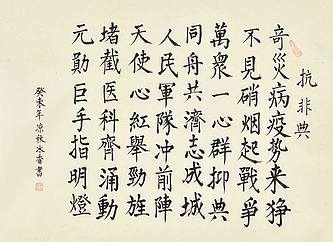 抗非典
奇災病疫势来狰
不見硝烟起戰爭
萬衆一心群抑典
同舟共濟志成城
人民軍隊冲前陣
天使一心紅舉勁旌
堵截医科齊涌動
元勛巨手指明燈
癸未年凉秋冰香書